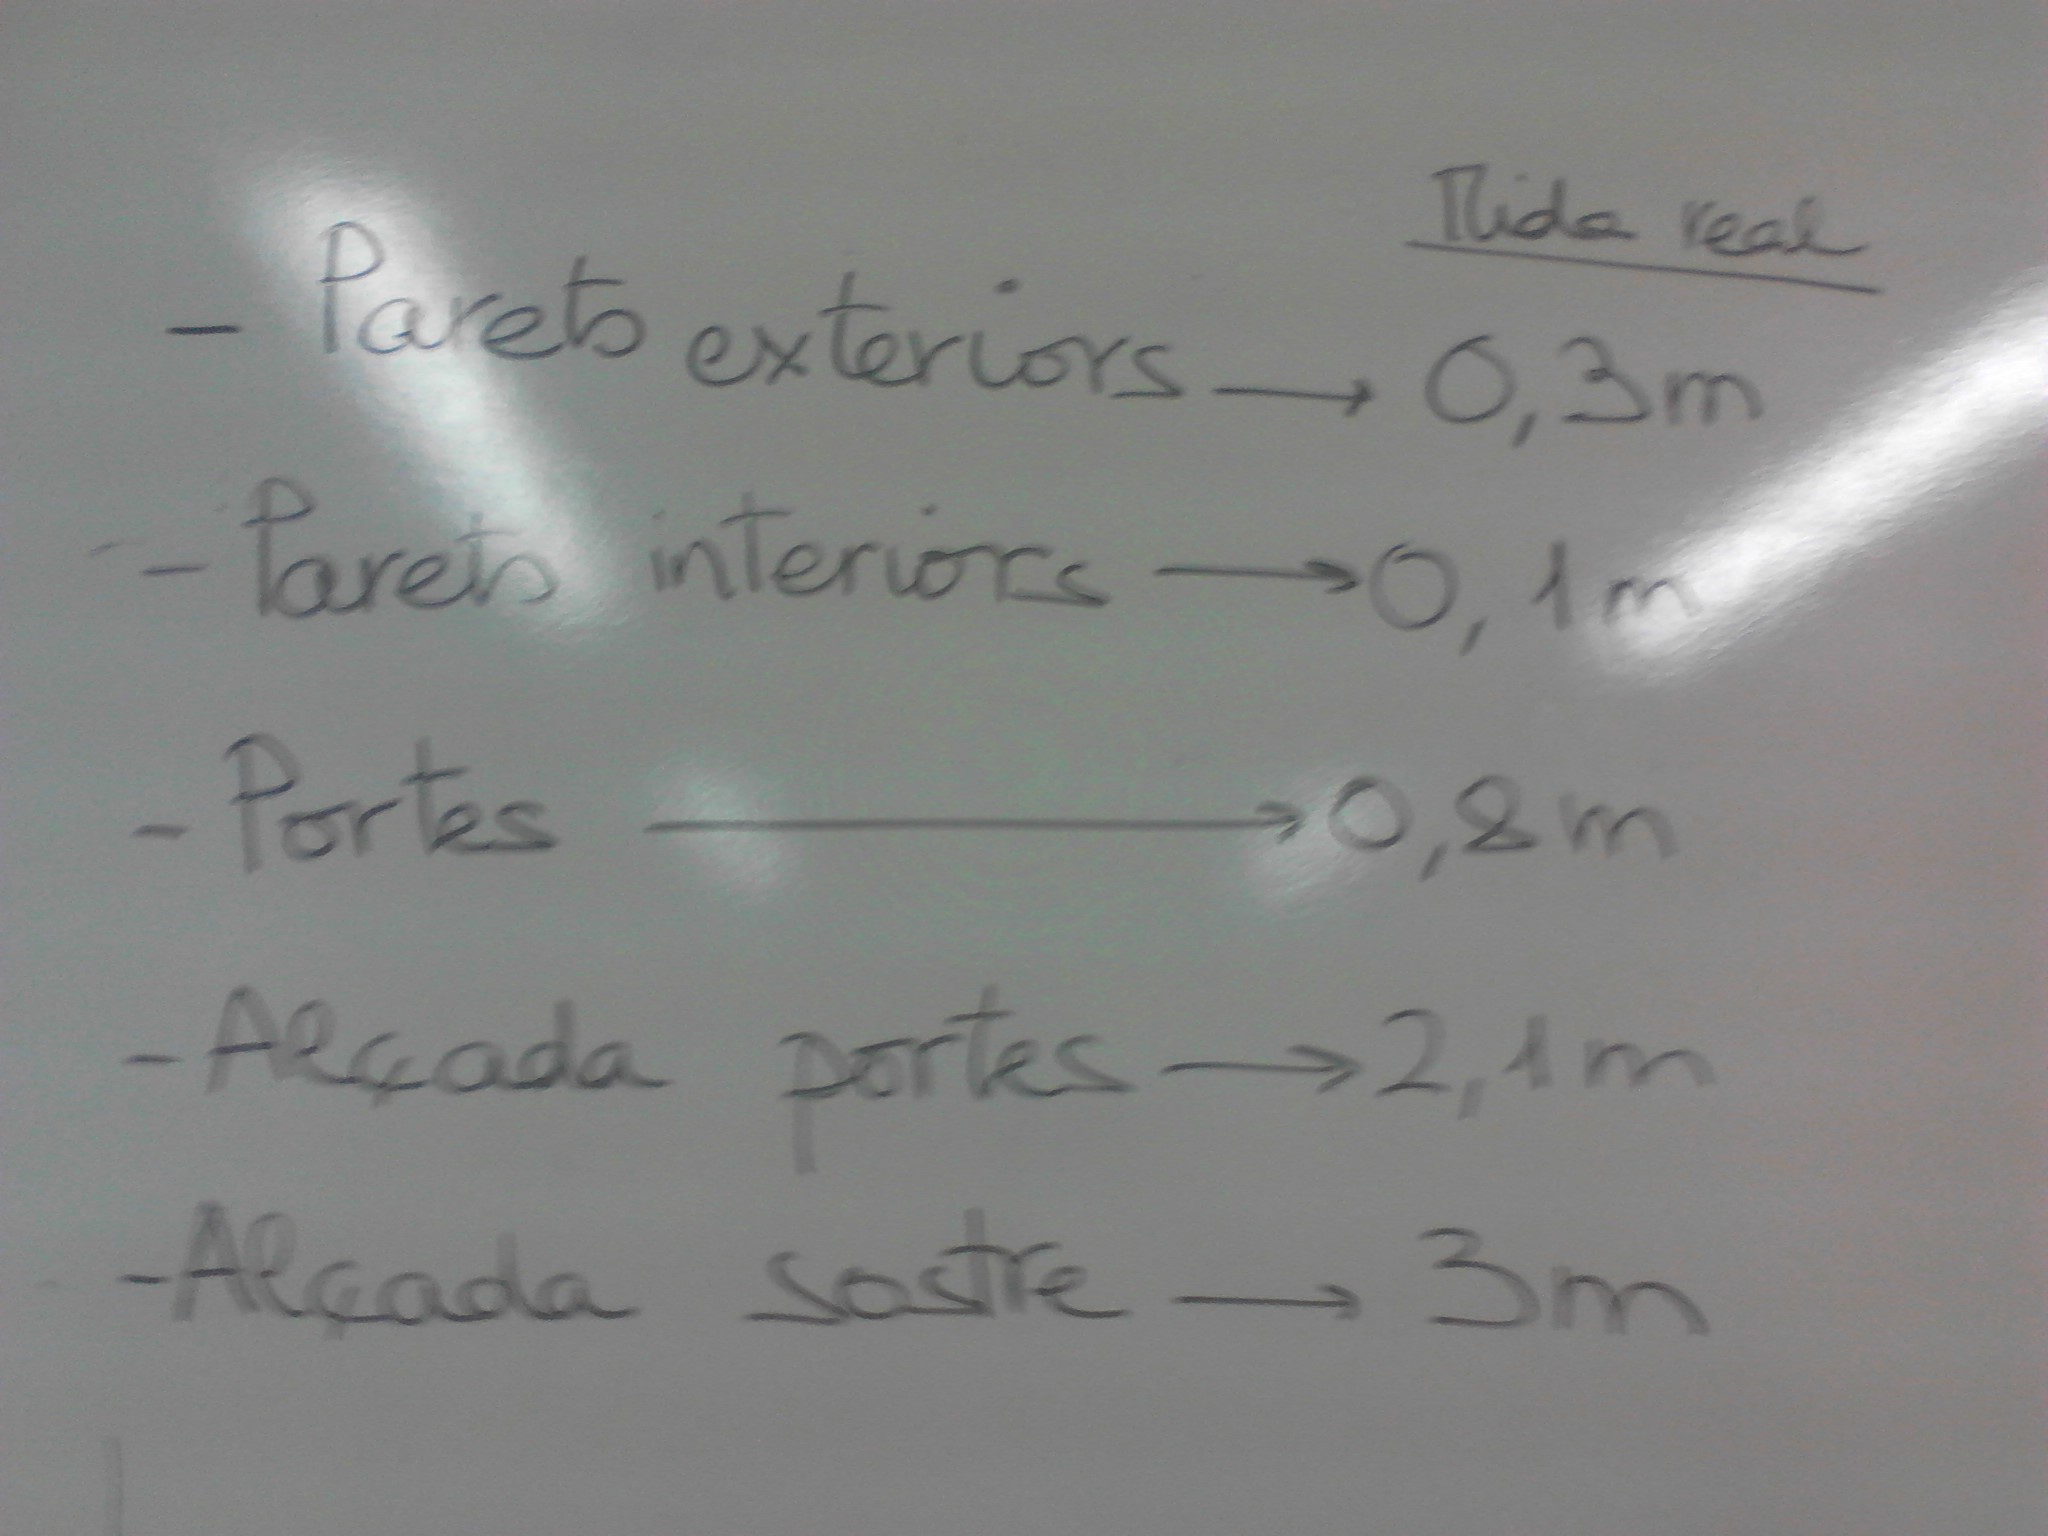 Mida real
- Parets exteriors → 0,3m
- Parets interiors → 0,1m
- Portes → 0,8m
- Alçada portes → 2,1m
- Alçada sostre → 3m